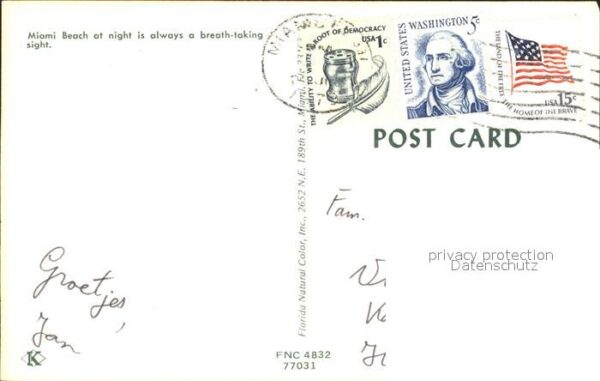 Miami Beach at night is always a breath-taking
sight.
MIAMI
THE ABILITY TO WRITE · A ROOT OF DEMOCRACY
USA 1c
UNITED STATES
WASHINGTON
5c
THE LAND OF THE FREE
THE HOME OF THE BRAVE
USA 15c
POST CARD
Florida Natural Color, Inc., 2652 N.E. 189th St., Miami, Fla. 
Fam.
privacy protection
Datenschutz
Groetjes,
Jan
K
FNC 4832
77031